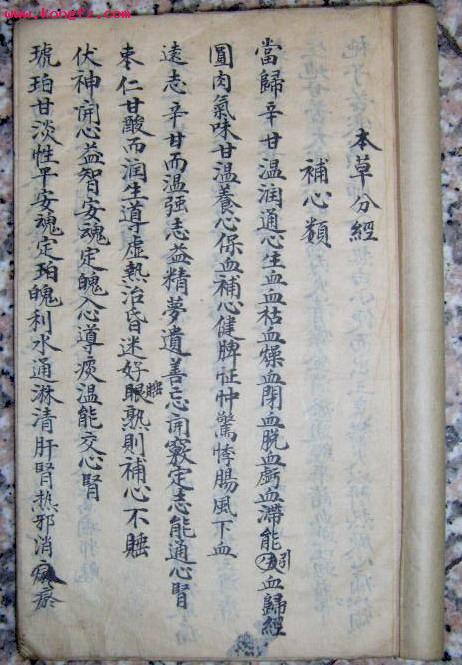 www.kongfz.com
本草分經
補心類
當歸辛甘温润通心生血血枯血燥血閉血脱血虧血滞能引血歸經
圓肉氣味甘温養心保血補心健脾怔忡驚悸腸風下血
遠志辛甘而温强志益精夢遺善忘開竅定志能通心腎
枣仁甘酸而润生導虛熱治昏迷好眼睡熟則補心不睡
伏神開心益智安魂定魄入心導痰温能交心腎
琥珀甘淡性平安魂定珀魄利水通淋清肝腎热邪消瘀